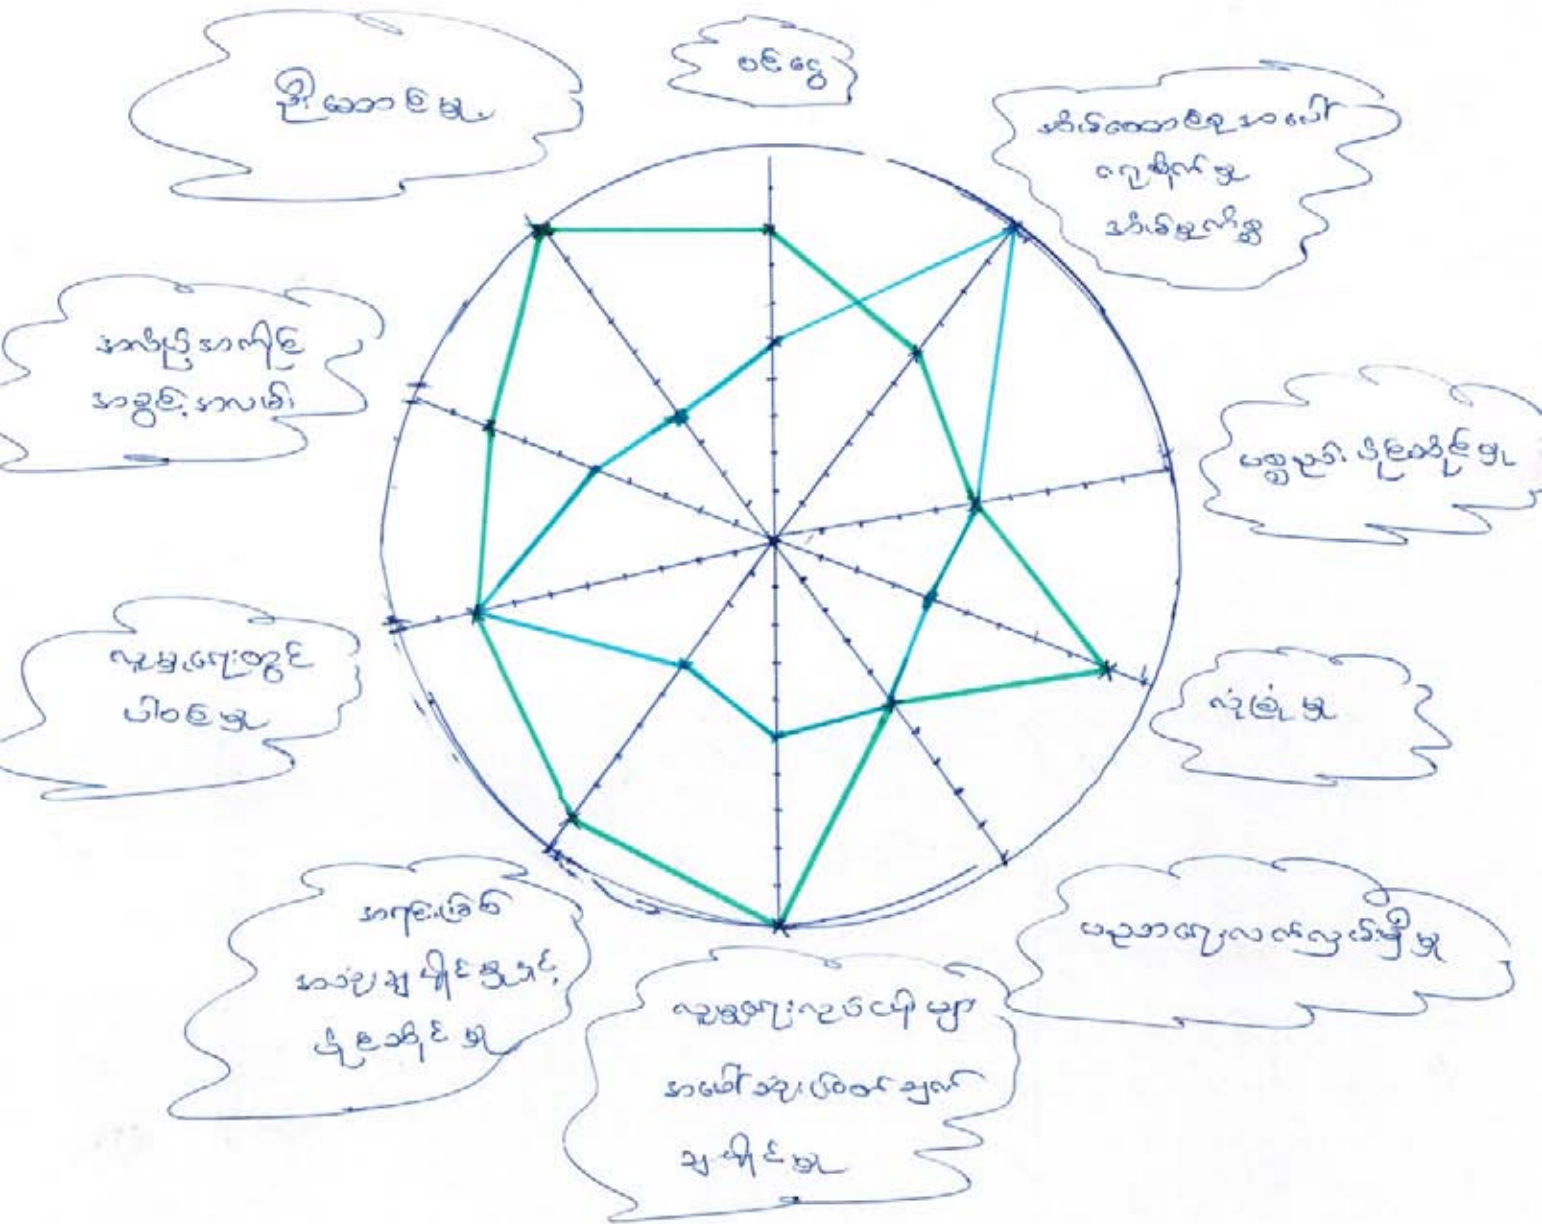 ဝင်ငွေ
အိမ်ထောင်စုအပေါ်
ဂရုစိုက်မှု
အိမ်မှုကိစ္စ
ပစ္စည်း ပိုင်ဆိုင်မှု
လုံခြုံမှု
ပညာရေးလက်လှမ်းမှီမှု
လူမှုရေးလုပ်ငန်းများ
အပေါ် ဆုံးဖြတ်ချက်
ချနိုင်မှု
အရင်းအမြစ်
အသုံးချနိုင်မှုနှင့်
ပိုင်ဆိုင်မှု
လူမှုရေးတွင်
ပါဝင်မှု
အခွင့်အလမ်း
ဦးဆောင်မှု